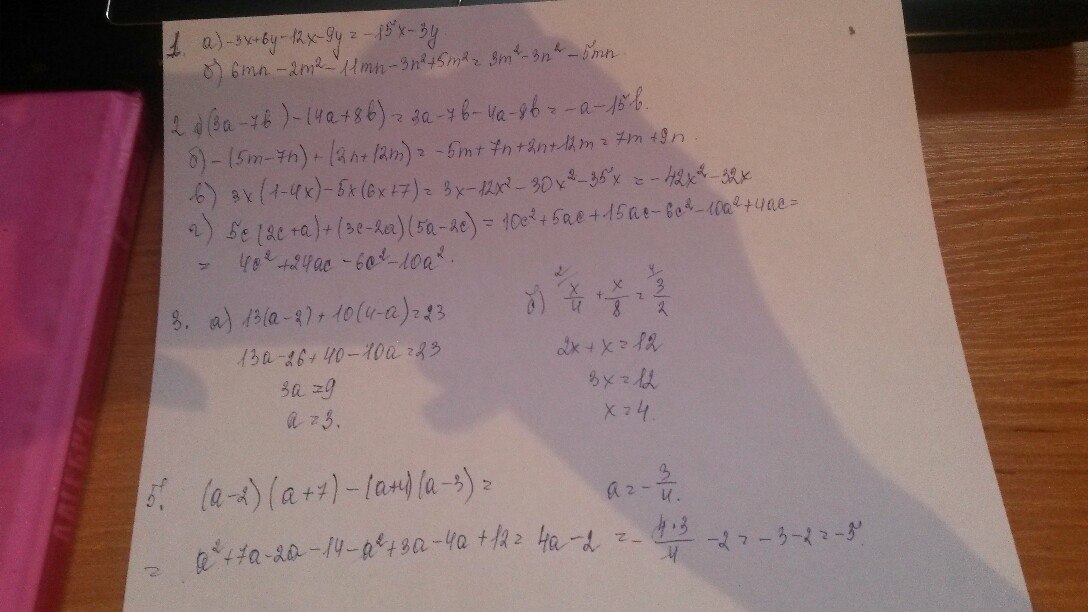 1. а) -3x+6y-12x-9y = -15x-3y
б) 6mn-2m²-11mn-3n²+5m² = 3m²-3n²-5mn
2. а) (3a-7b)-(4a+8b) = 3a-7b-4a-8b = -a-15b.
б) -(5m-7n)+(2n+12m) = -5m+7n+2n+12m = 7m+9n.
в) 3x(1-4x)-5x(6x+7) = 3x-12x²-30x²-35x = -42x²-32x
г) 5c(2c+a)+(3c-2a)(5a-2c) = 10c²+5ac+15ac-6c²-10a²+4ac =
= 4c²+24ac-6c²-10a².
3. а) 13(a-2)+10(4-a)=23
13a-26+40-10a=23
3a=9
a=3.
б) 2/ x/4 + x/8 = 4/ 3/2
2x+x=12
3x=12
x=4.
5. (a-2)(a+7)-(a+4)(a-3) =
a=-3/4.
= a²+7a-2a-14-a²+3a-4a+12 = 4a-2 = -4·3/4 -2 = -3-2 = -5